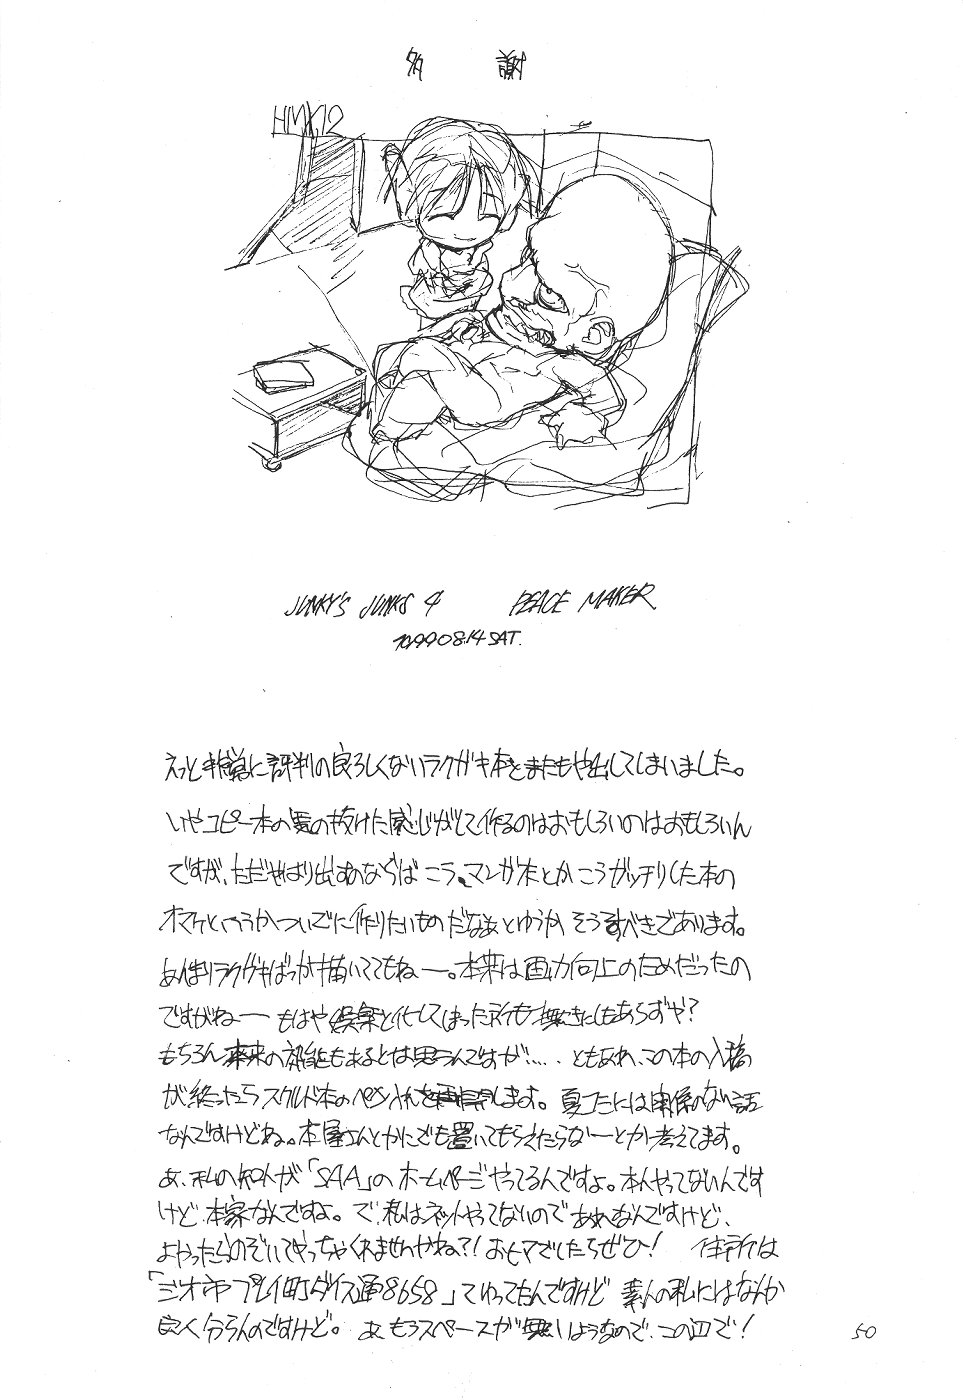 多 謝
HMX12
JUNKY'S JUNKS 4 PEACE MAKER
1999 08.14 SAT.
えっと非常に評判の良ろしくないラクガキ本をまたもや出してしまいました。
いやコピー本の気の抜けた感じがして作るのはおもしろいのはおもしろいん
ですが、ただやはり出すのならば こう、マンガ本とか こうガッチリした本の
オマケとゆうかついでに作りたいものだなぁとゆうか そうすべきであります。
あんまりラクガキばっか描いててもねー。本来は画力向上のためだったの
ですがねー もはや娯楽と化してしまった所も無きにしもあらずや?
もちろん本来の効能もあるとは思うんですが…. ともあれ、この本の入稿
が終ったらスクルド本のペン入れを再開します。夏コミには関係のない話
なんですけどね。本屋さんとかにでも置いてもらえたらなーとか考えてます。
あ、私の知人が「SAA」のホームページやってるんですよ。本人やってないんです
けど 本家なんですよ。で、私はネットやってないので あれなんですけど、
よかったらのぞいてやっちゃくれませんかね?! おヒマでしたらぜひ! 住所は
「ジオ市プレイ町ダイス通8658」ていってたんですけど 素人の私にはなんか
良く分らんのですけど。 あ、もうスペースが無いようなので、この辺で!
50